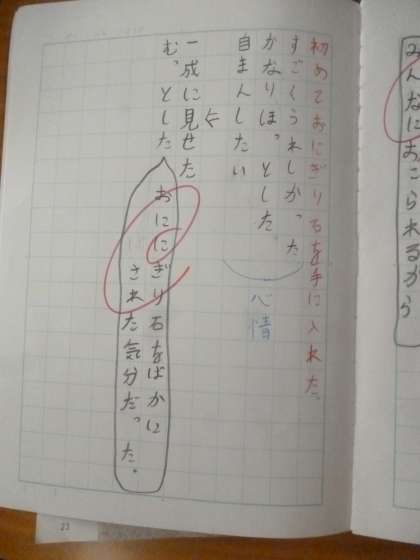 みんなにおこられるから
初めておにぎり石を手に入れた。
すごくうれしかった
かなりほっとした。
自まんしたい
心情
一成に見せた
むっとした
おににぎり石をばかに
された気分だった。
23